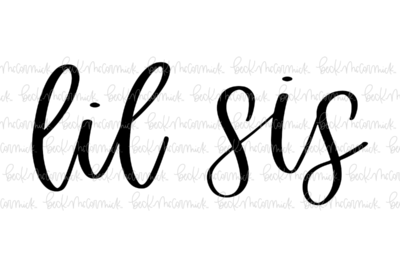 lil sis